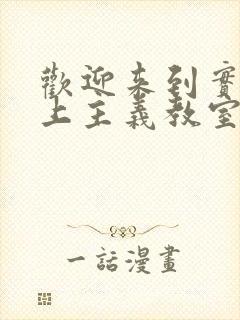 歡迎來到實
上主義教室
一話漫畫